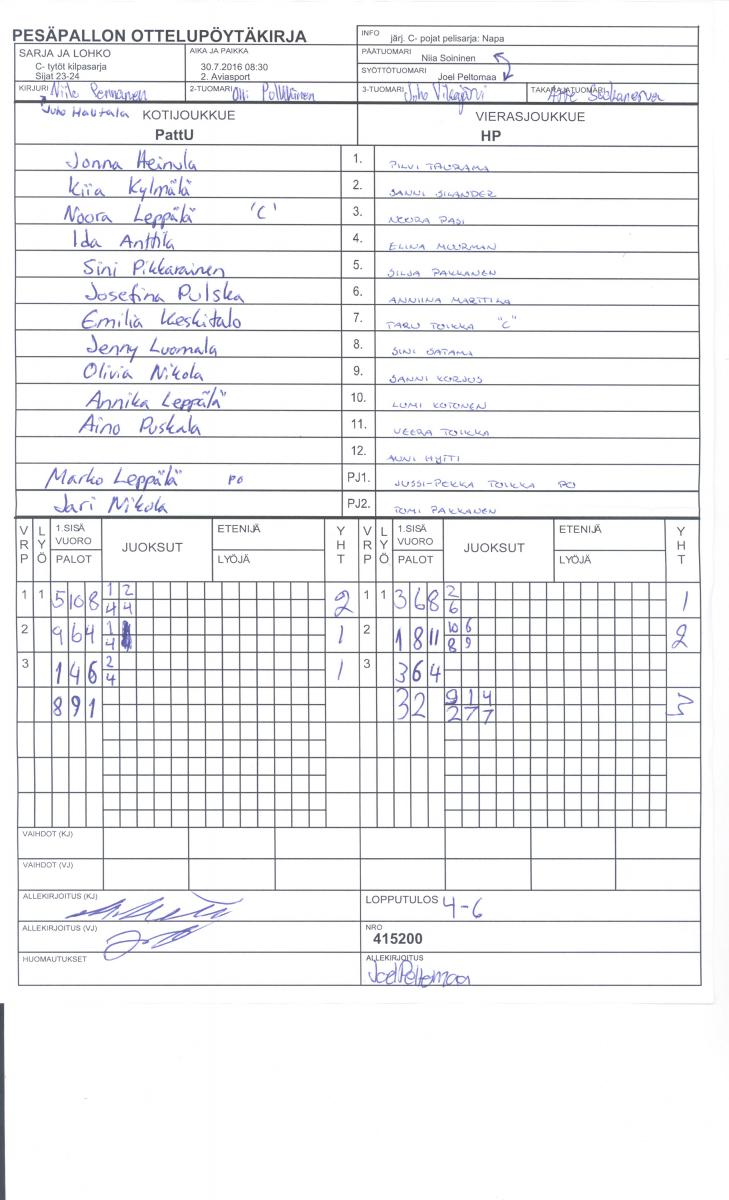 PESÄPALLON OTTELUPÖYTÄKIRJA
INFO järj. C- pojat pelisarja: Napa
SARJA JA LOHKO
C- tytöt kilpasarja
Sijat 23-24
AIKA JA PAIKKA
30.7.2016 08:30
2. Aviasport
PÄÄTUOMARI Niia Soininen
SYÖTTÖTUOMARI Joel Peltomaa
KIRJURI Niile Permanen
Juho Hautala
2-TUOMARI Olli
3-TUOMARI Juho
TAKARAJATUOMARI
KOTIJOUKKUE
PattU
VIERASJOUKKUE
HP
Jonna Heinula 1. PILVI TAURAMA
Kiia Kylmälä 2. SANNI SILANDER
Noora Leppälä 'C' 3. NOORA PASI
Ida Anttila 4. ELINA MUURMAN
Sini Pikkarainen 5. SILJA PAKKANEN
Josefina Pulska 6. ANNIINA MARTTILA
Emilia Keskitalo 7. TARU TOIKKA "C"
Jenny Luomala 8. SINI SATAMA
Olivia Nikola 9. SANNI KORJUS
Annika Leppälä 10. LUMI KOTONEN
Aino Puskala 11. VEERA TOIKKA
12. AUNI HYTTI
Marko Leppälä PO PJ1. JUSSI-PEKKA TOIKKA PO
Jari Nikola PJ2. TOMI PAKKANEN
VRP LYÖ 1.SISÄ VUORO PALOT JUOKSUT ETENIJÄ LYÖJÄ YHT VRP LYÖ 1.SISÄ VUORO PALOT JUOKSUT ETENIJÄ LYÖJÄ YHT
1 1 5 10 8 1/4 2/4 2 1 1 3 6 8 2/6 1
2 9 6 4 1/4 1 2 1 8 11 10/8 6/9 2
3 1 4 6 2/4 1 3 3 6 4
8 9 1 3 2 9/2 1/7 4/7 3
VAIHDOT (KJ)
VAIHDOT (VJ)
ALLEKIRJOITUS (KJ)
LOPPUTULOS 4-6
ALLEKIRJOITUS (VJ)
NRO
415200
HUOMAUTUKSET
ALLEKIRJOITUS
Joel Peltomaa